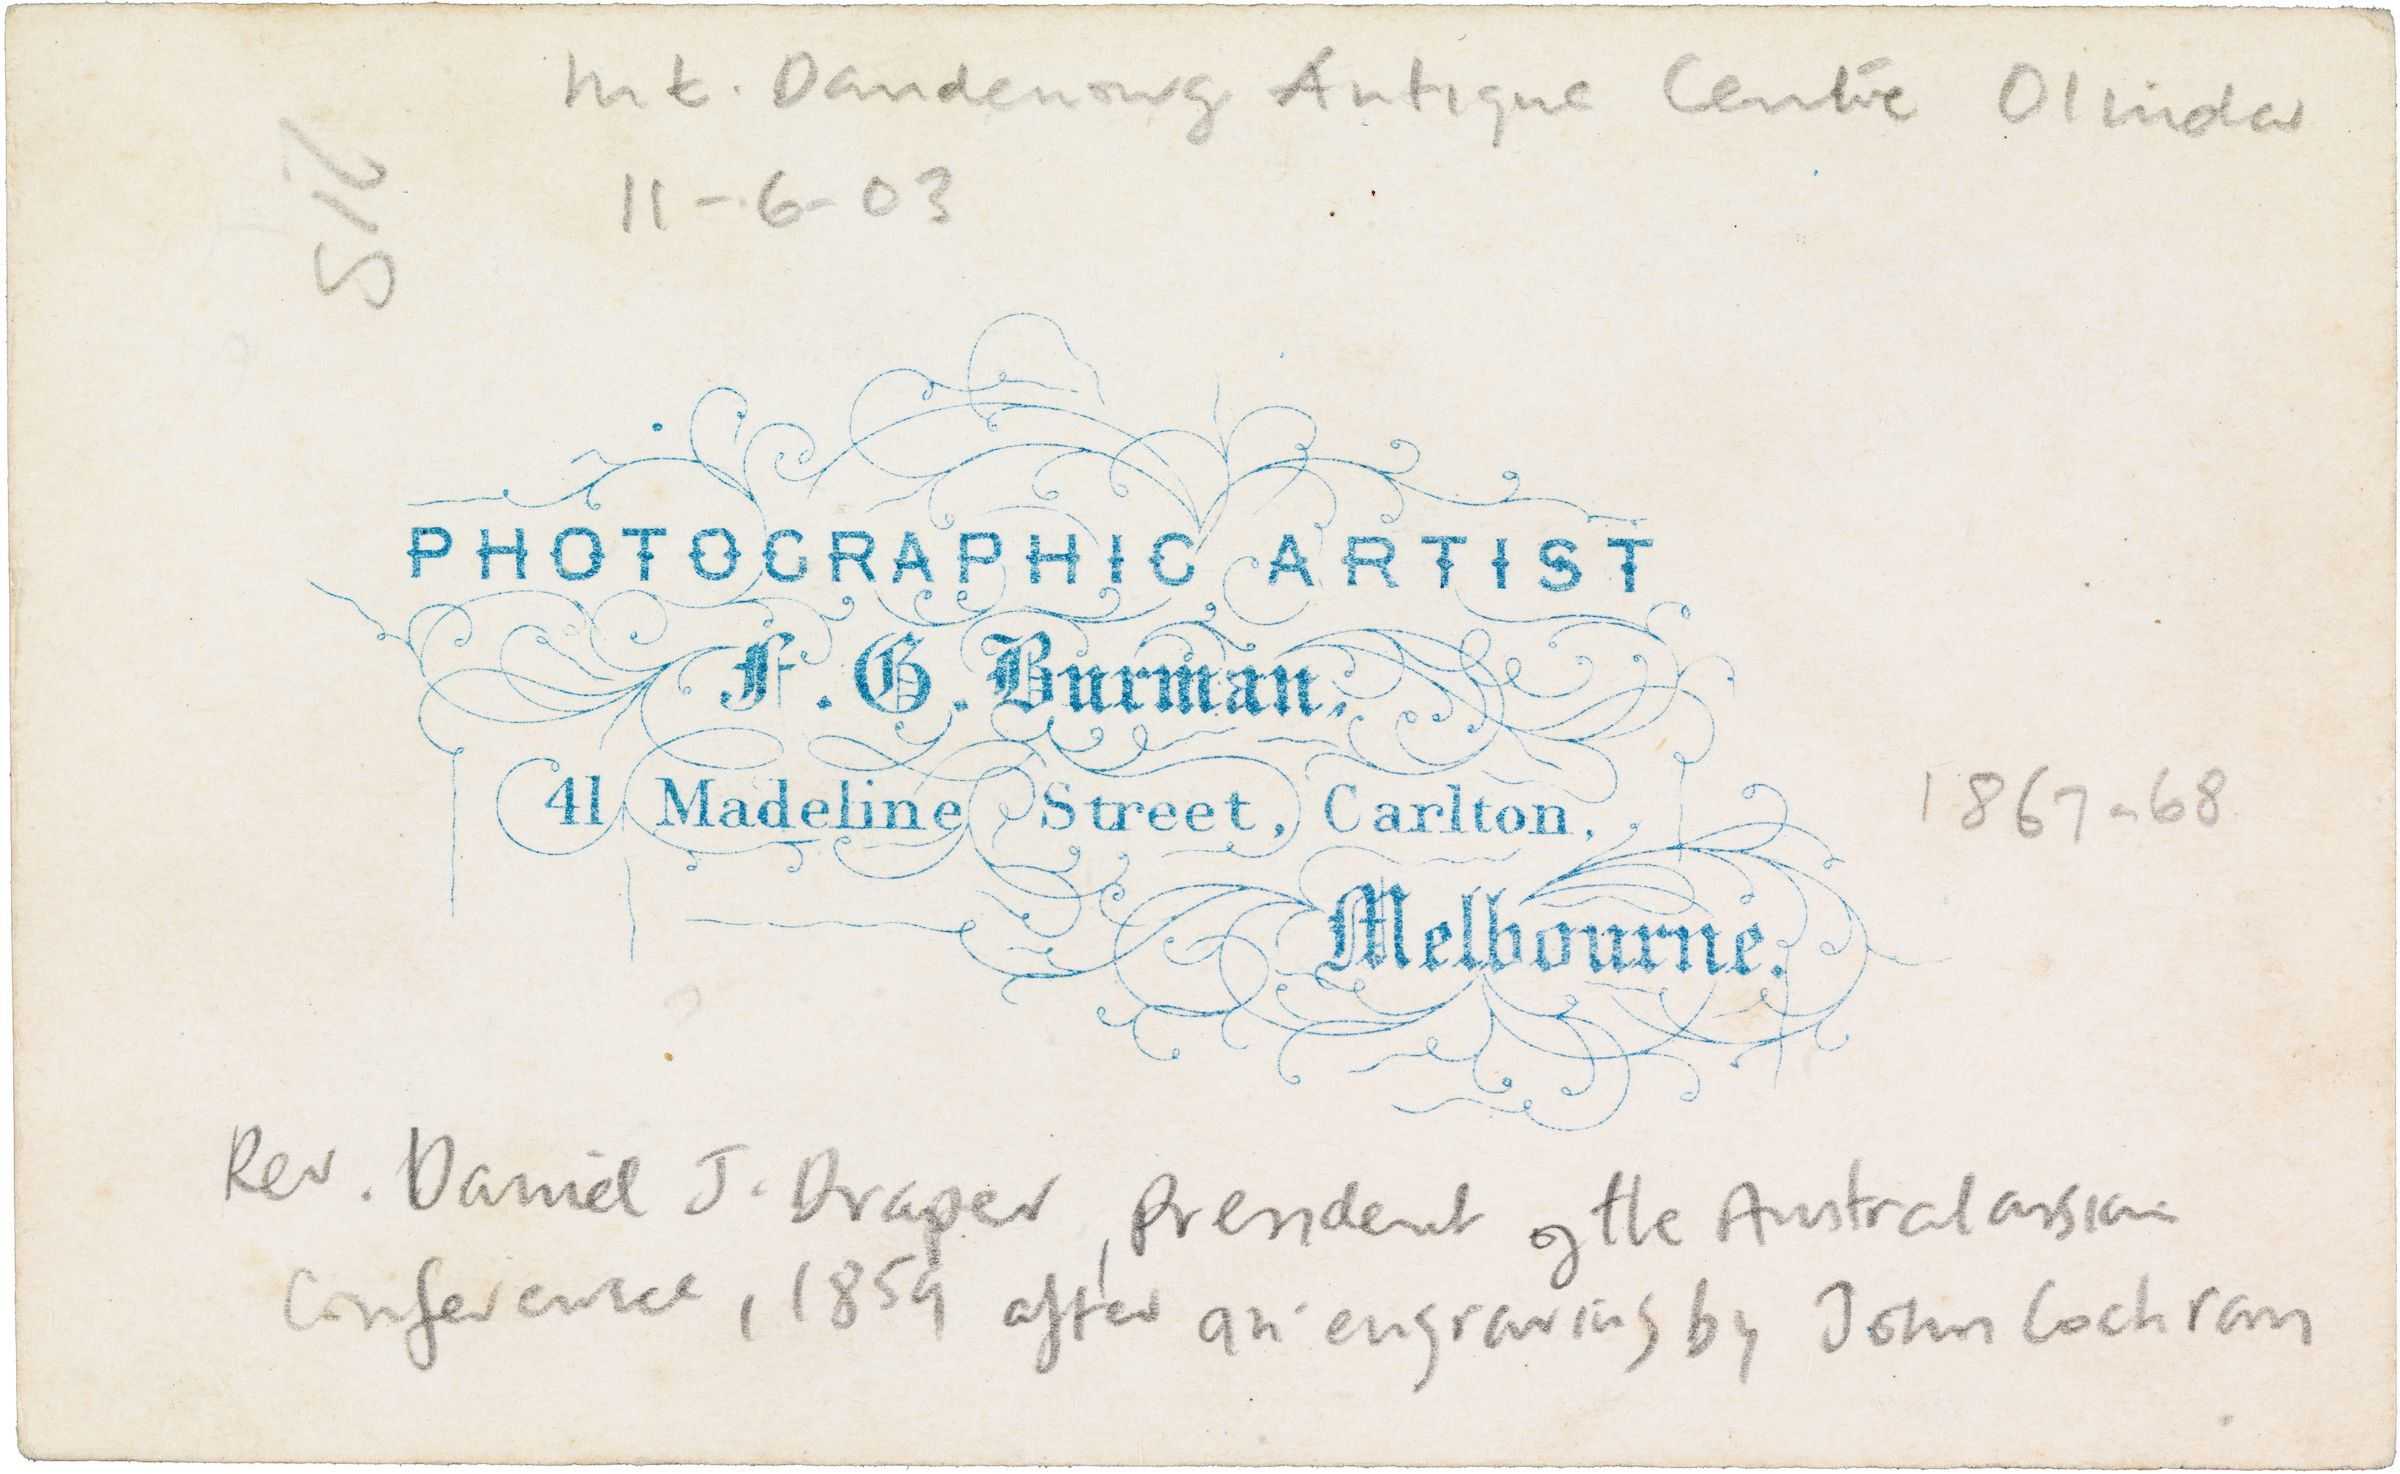 Mt. Dandenong Antique Centre Olinda
11-6-03
PHOTOGRAPHIC ARTIST
F. G. Burman,
41 Madeline Street, Carlton,
Melbourne.
1867-68
Rev. Daniel J. Draper, President of the Australasian
Conference, 1859 after an engraving by John Cochran